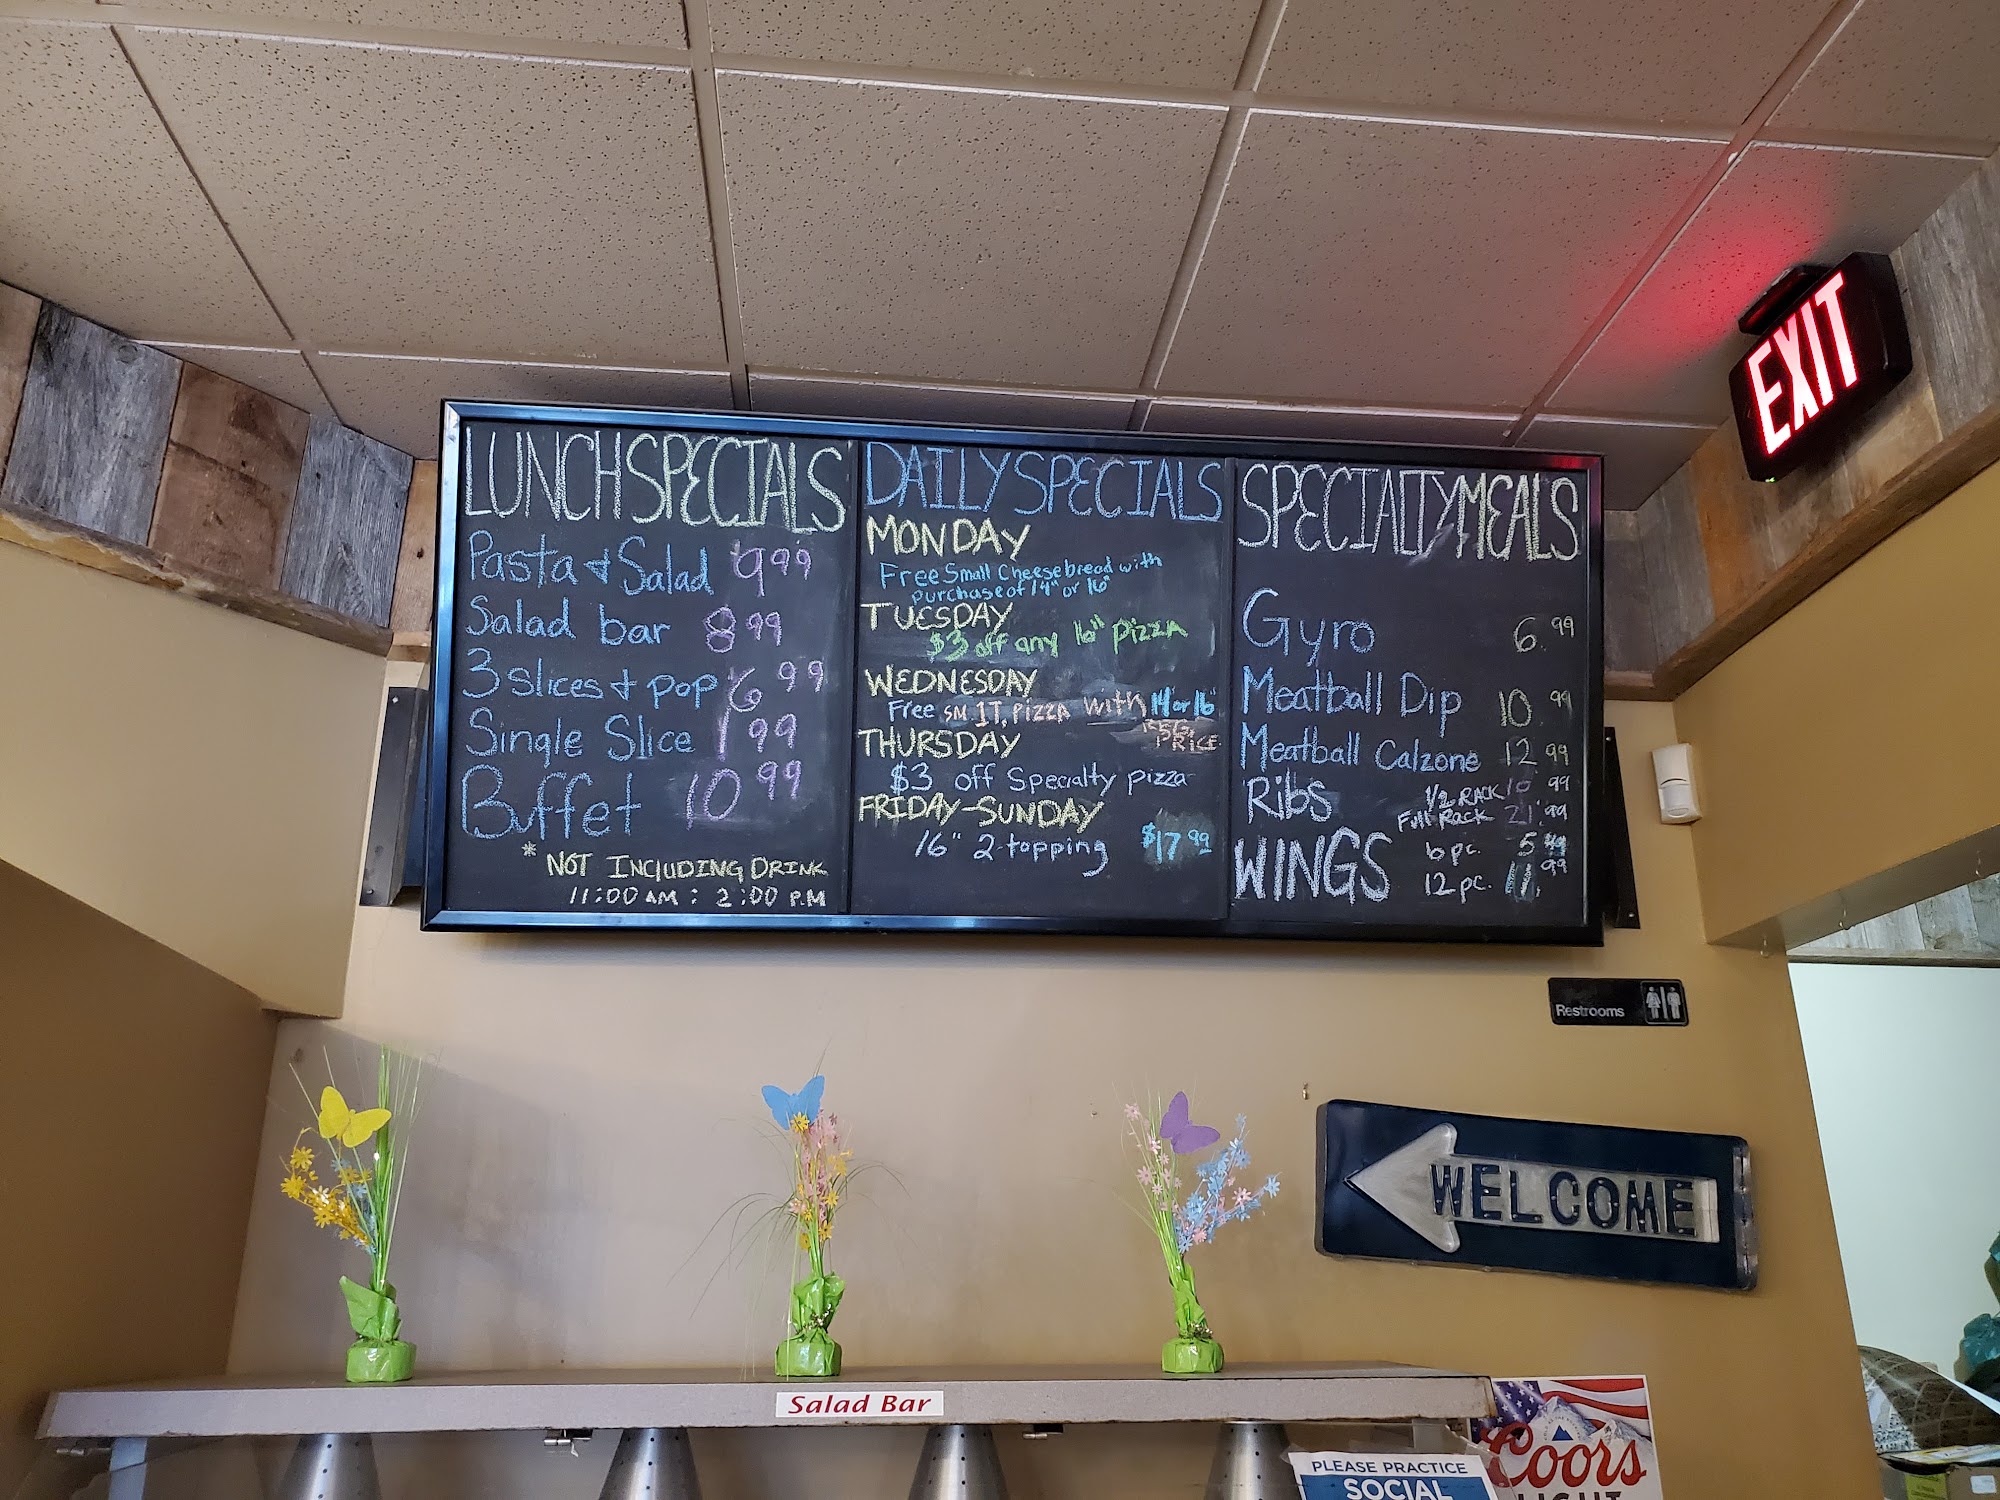 LUNCH SPECIALS
Pasta & Salad 9.99
Salad bar 8.99
3 slices + pop 6.99
Single Slice 1.99
Buffet 10.99
* NOT INCLUDING DRINK
11:00 AM : 2:00 P.M
DAILY SPECIALS
MONDAY
Free Small Cheesebread with
purchase of 14" or 16"
TUESDAY
$3 off any 16" pizza
WEDNESDAY
Free SM 1T, PIZZA with 14 or 16"
REG. PRICE
THURSDAY
$3 off Specialty pizza
FRIDAY-SUNDAY
16" 2-topping $17.99
SPECIALTY MEALS
Gyro 6.99
Meatball Dip 10.99
Meatball Calzone 12.99
Ribs 1/2 RACK 10.99
Full Rack 21.99
WINGS 6 pc. 5.99
12 pc. 11.99
EXIT
Restrooms
WELCOME
Salad Bar
PLEASE PRACTICE
SOCIAL
Coors
LIGHT